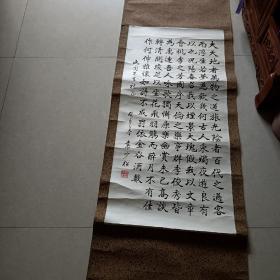 夫天地者萬物之逆旅光陰者百代之過客
而浮生若夢為歡幾何古人秉燭夜遊良有
以也況陽春召我以煙景大塊假我以文章
會桃李之芳園序天倫之樂事群季俊秀皆
為惠連吾人詠歌獨慚康樂幽賞未已高談
轉清開瓊筵以坐花飛羽觴而醉月不有佳
作何伸雅懷如詩不成罰依金谷酒數